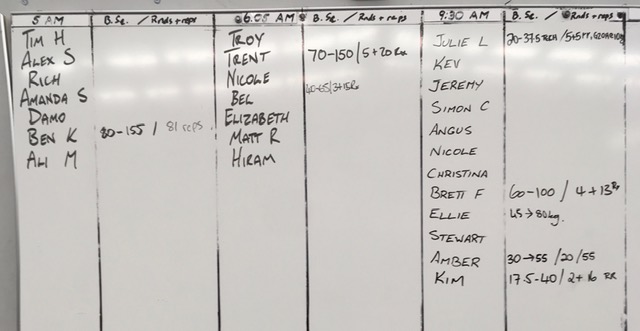 5 AM B.Sq. / Rnds + reps
TIM H
ALEX S
RICH
AMANDA S
DAMO
BEN K 80-155 / 81 reps
ALI M
6.05 AM B.Sq. / Rnds + reps
TROY
TRENT 70-150 / 5+20 Rx
NICOLE
BEL 40-65/3+15Rx
ELIZABETH
MATT R
HIRAM
9:30 AM B.Sq. / Rnds + reps
JULIE L 20-37.5
KEV
JEREMY
SIMON C
ANGUS
NICOLE
CHRISTINA
BRETT F 60-100 / 4+13 Rx
ELLIE 45→80kg.
STEWART
AMBER 30→55 /20/55
KIM 17.5-40/2+16 RX